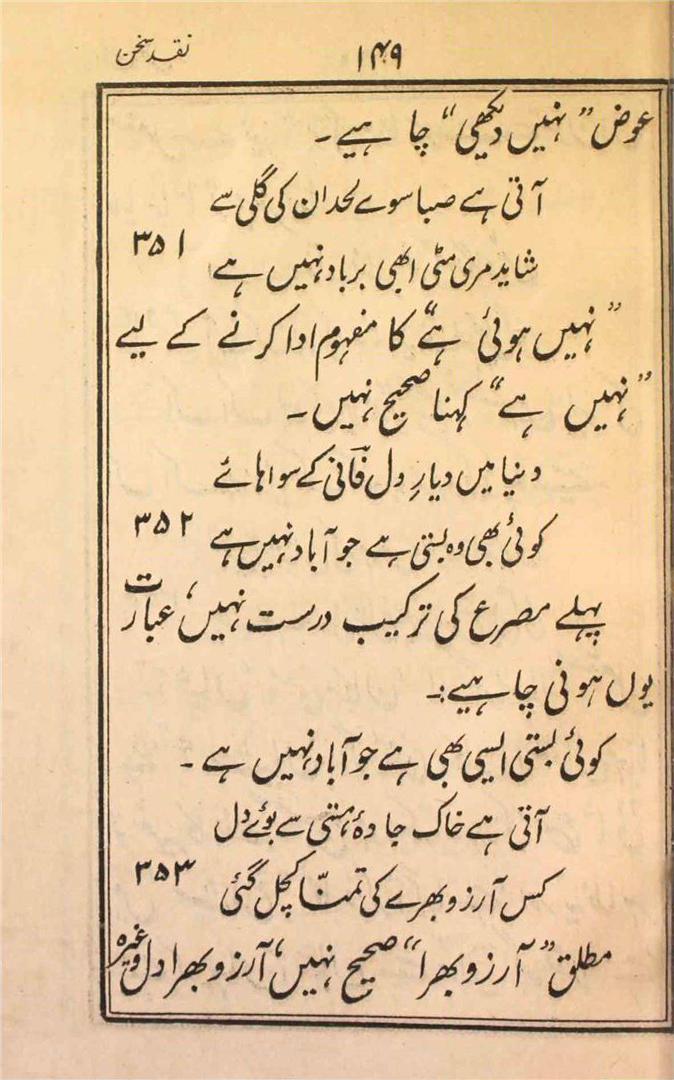 نقد سخن
۱۴۹
عوض ”نہیں دیکھی“ چاہیے۔
آتی ہے صبا سوے لحد ان کی گلی سے
شاید مری مٹی ابھی برباد نہیں ہے ۳۵۱
”نہیں ہوئی ہے“ کا مفہوم ادا کرنے کے لیے
”نہیں ہے“ کہنا صحیح نہیں۔
دنیا میں دیارِ دل فانی کے سوا ہائے
کوئی بھی وہ بستی ہے جو آباد نہیں ہے ۳۵۲
پہلے مصرع کی ترکیب درست نہیں، عبارت
یوں ہونی چاہیے:۔
کوئی بستی ایسی بھی ہے جو آباد نہیں ہے۔
آتی ہے خاک جادۂ ہستی سے بوئے دل
کس آرزو بھرے کی تمنّا کچل گئی ۳۵۳
مطلق ”آرزو بھرا“ صحیح نہیں، آرزو بھرا دل وغیرہ